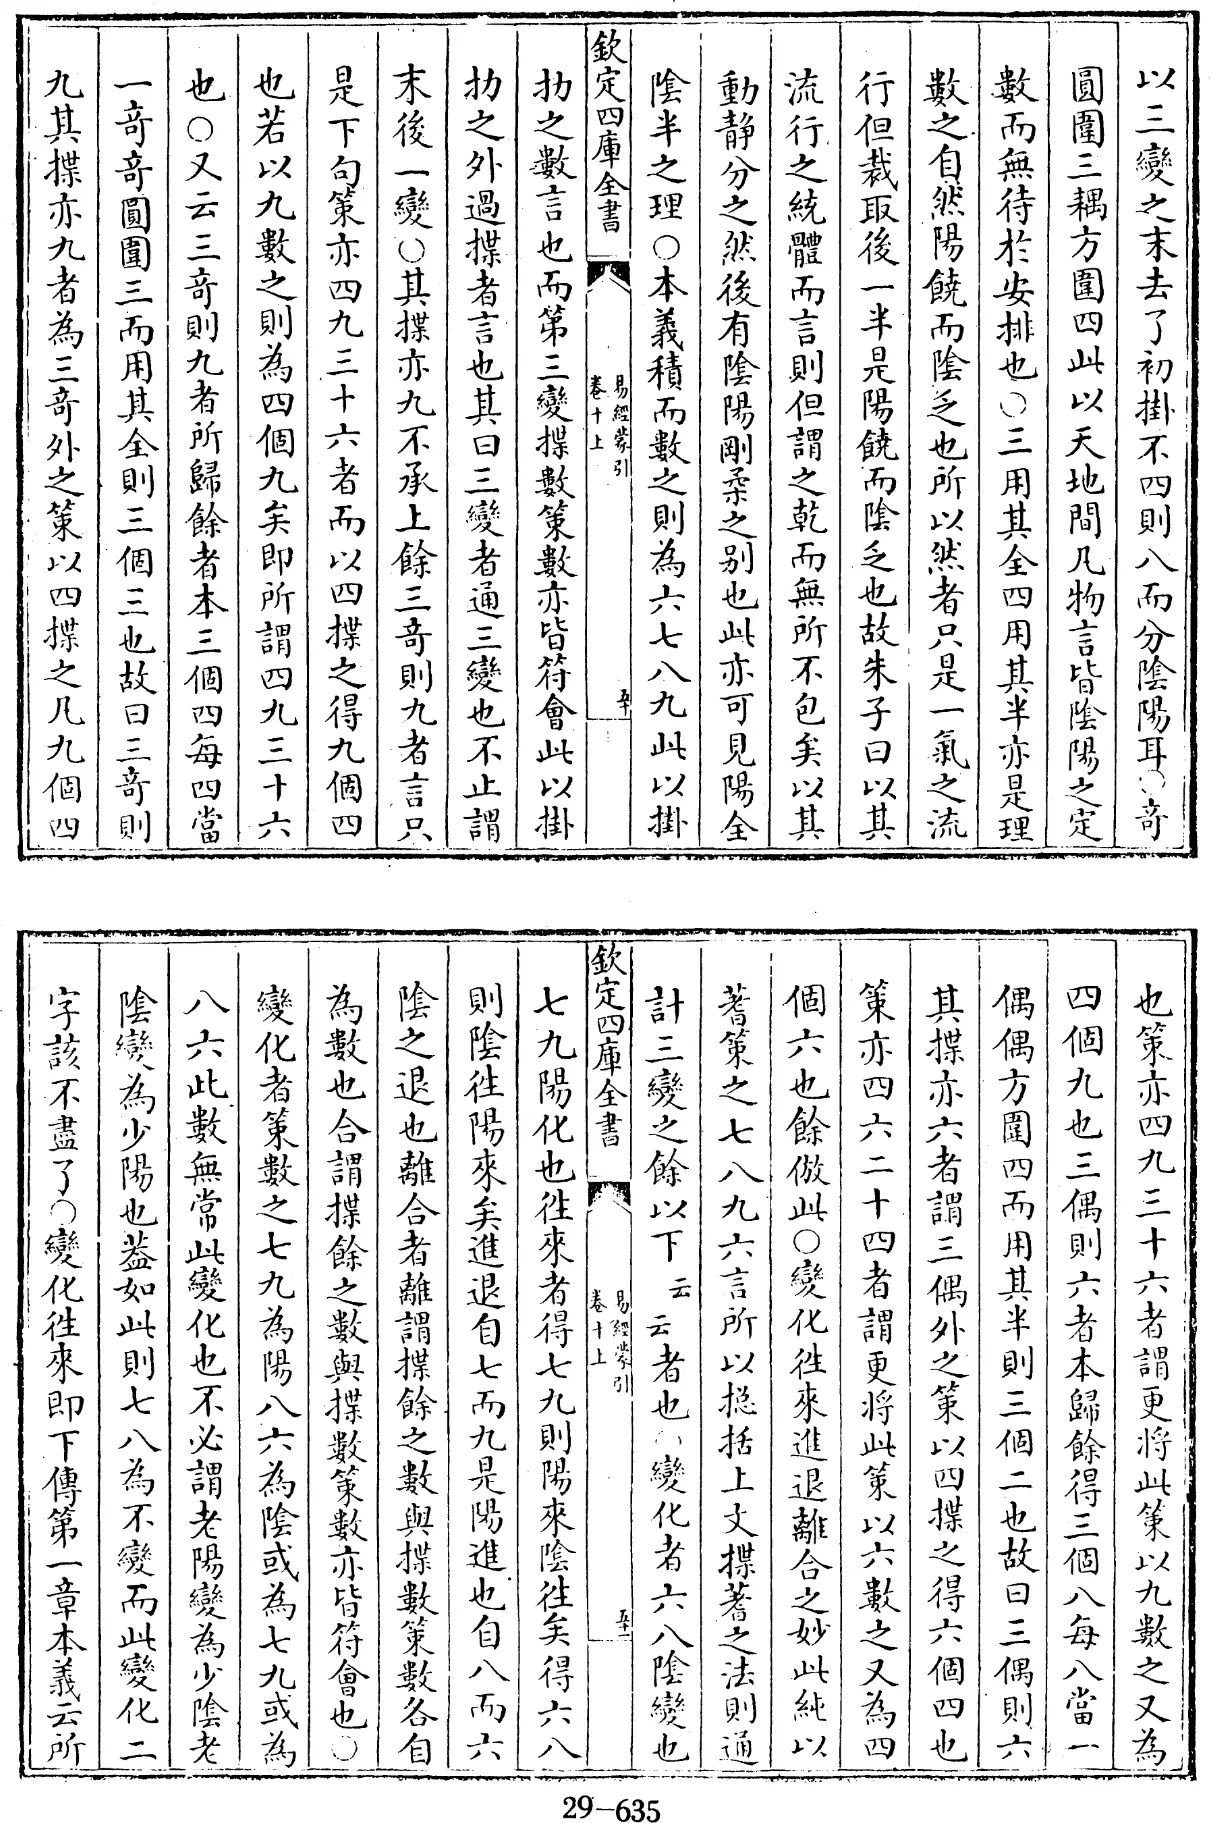 以三變之末去了初掛不四則八而分陰陽耳○奇
圓圍三耦方圍四此以天地間凡物言皆陰陽之定
數而無待於安排也○三用其全四用其半亦是理
數之自然陽饒而陰乏也所以然者只是一氣之流
行但裁取後一半是陽饒而陰乏也故朱子曰以其
流行之統體而言則但謂之乾而無所不包矣以其
動靜分之然後有陰陽剛柔之别也此亦可見陽全
陰半之理○本義積而數之則為六七八九此以掛
欽定四庫全書
易經蒙引
卷十上
扐之數言也而第三變揲數策數亦皆符會此以掛
扐之外過揲者言也其曰三變者通三變也不止謂
末後一變○其揲亦九不承上餘三奇則九者言只
是下句策亦四九三十六者而以四揲之得九個四
也若以九數之則為四個九矣即所謂四九三十六
也○又云三奇則九者所歸餘者本三個四每四當
一奇奇圓圍三而用其全則三個三也故曰三奇則
九其揲亦九者為三奇外之策以四揲之凡九個四
也策亦四九三十六者謂更將此策以九數之又為
四個九也三偶則六者本歸餘得三個八每八當一
偶偶方圍四而用其半則三個二也故曰三偶則六
其揲亦六者謂三偶外之策以四揲之得六個四也
策亦四六二十四者謂更將此策以六數之又為四
個六也餘倣此○變化徃來進退離合之妙此純以
蓍策之七八九六言所以捴括上文揲蓍之法則通
計三變之餘以下云云者也○變化者六八陰變也
欽定四庫全書
易經蒙引
卷十上
七九陽化也徃來者得七九則陽來陰徃矣得六八
則陰徃陽來矣進退自七而九是陽進也自八而六
陰之退也離合者離謂揲餘之數與揲數策數各自
為數也合謂揲餘之數與揲數策數亦皆符會也○
變化者策數之七九為陽八六為陰或為七九或為
八六此數無常此變化也不必謂老陽變為少陰老
陰變為少陽也葢如此則七八為不變而此變化二
字該不盡了○變化徃來即下傳第一章本義云所
29-635